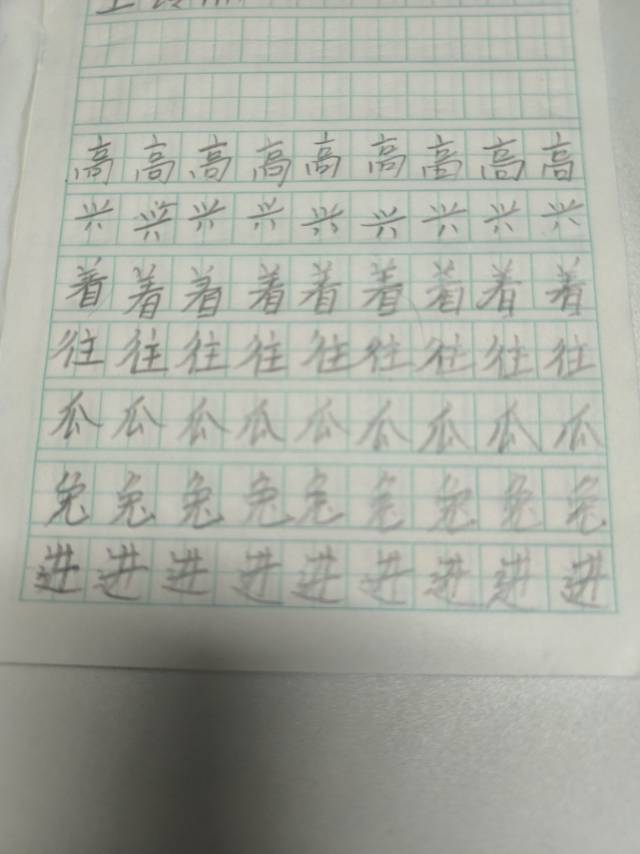 高高高高高高高高高
兴兴兴兴兴兴兴兴兴
着着着着着着着着着
往往往往往往往往往
瓜瓜瓜瓜瓜瓜瓜瓜瓜
兔兔兔兔兔兔兔兔兔
进进进进进进进进进